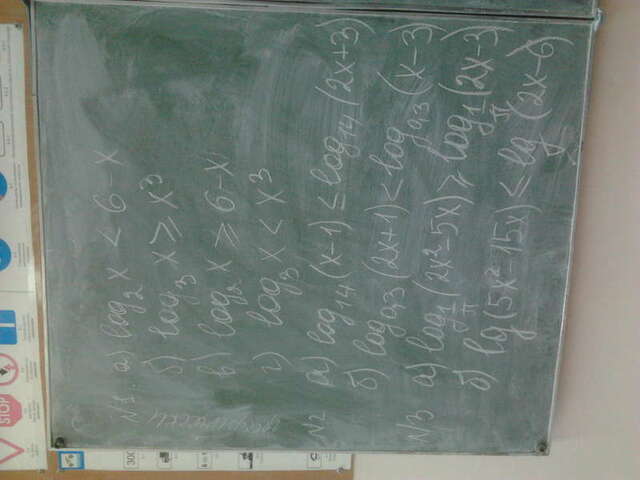 N1. а) log₂ x < 6-x
б) log₃ x ≥ x³
в) log₂ x ≥ 6-x
г) log₃ x < x³
N2 а) log₁₄ (x-1) ≤ log₁₄ (2x+3)
б) log₀,₃ (2x+1) < log₀,₃ (x-3)
N3 а) log_{1/π} (2x²-5x) ≥ log_{1/π} (2x-3)
б) lg (5x²-15x) ≤ lg (2x-6)
STOP
300